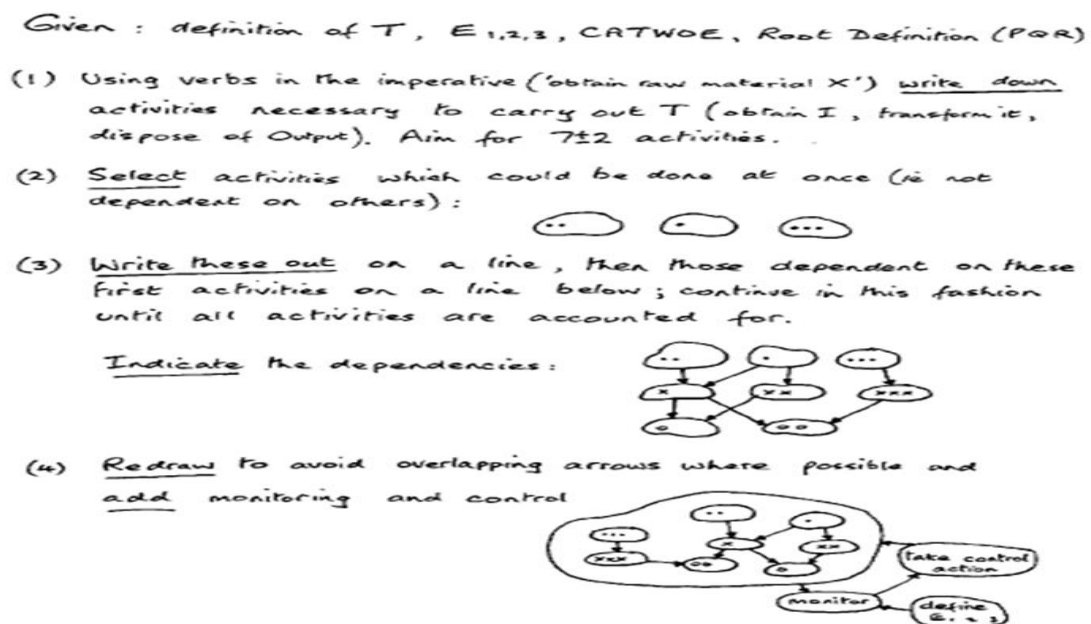 Given : definition of T, E1,2,3, CATWOE, Root Definition (PQR)
(1) Using verbs in the imperative ('obtain raw material X') write down
activities necessary to carry out T (obtain I, transform it,
dispose of Output). Aim for 7±2 activities.
(2) Select activities which could be done at once (ie not
dependent on others) :
.. . ...
(3) Write these out on a line, then those dependent on these
first activities on a line below; continue in this fashion
until all activities are accounted for.
Indicate the dependencies :
.. . ...
x xx xxx
o oo
(4) Redraw to avoid overlapping arrows where possible and
add monitoring and control
.. .
...
x xx
xxx oo o
take control
action
monitor
define
E1, 2, 3